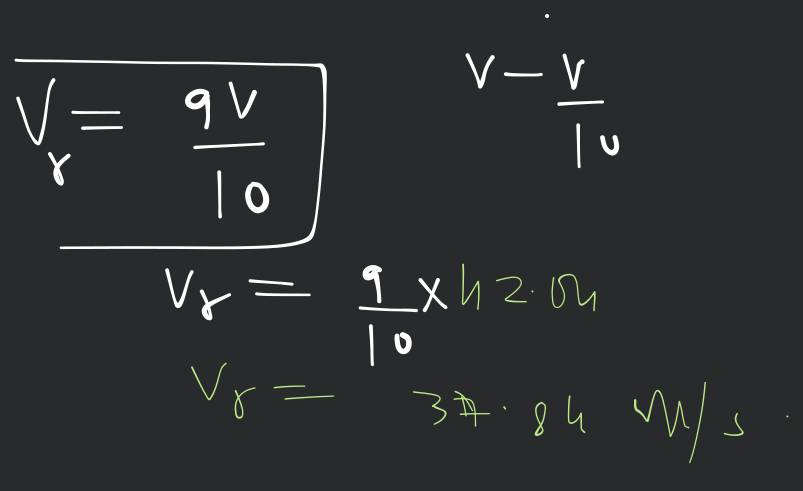 V_r = 9V/10
V - V/10
V_r = 9/10 × 42.04
V_r = 37.84 m/s.